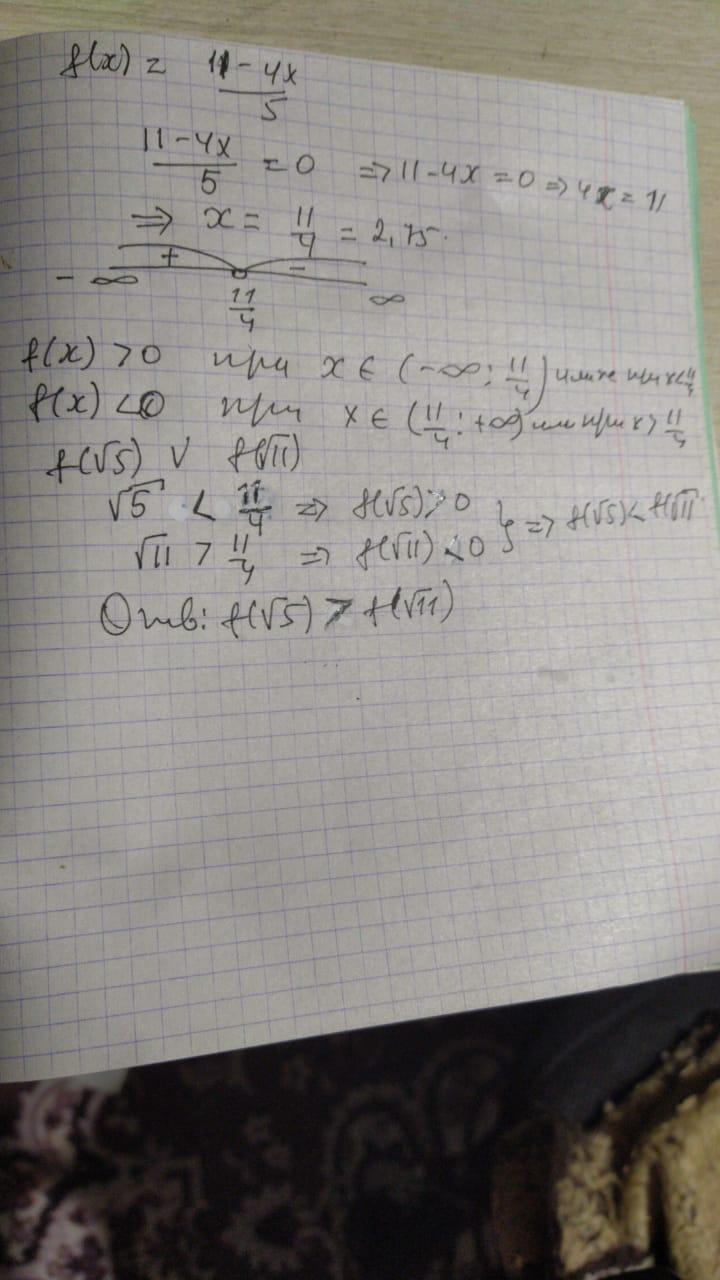 f(x) = (11 - 4x)/5
(11 - 4x)/5 = 0 ⇒ 11 - 4x = 0 ⇒ 4x = 11
⇒ x = 11/4 = 2,75.
+ -
- ∞ 11/4 ∞
f(x) > 0 при x ∈ (-∞; 11/4) или же при x < 11/4
f(x) < 0 при x ∈ (11/4; +∞) или при x > 11/4
f(√5) ∨ f(√11)
√5 < 11/4 ⇒ f(√5) > 0 } ⇒ f(√5) < f(√11)
√11 > 11/4 ⇒ f(√11) < 0
Отв: f(√5) > f(√11)